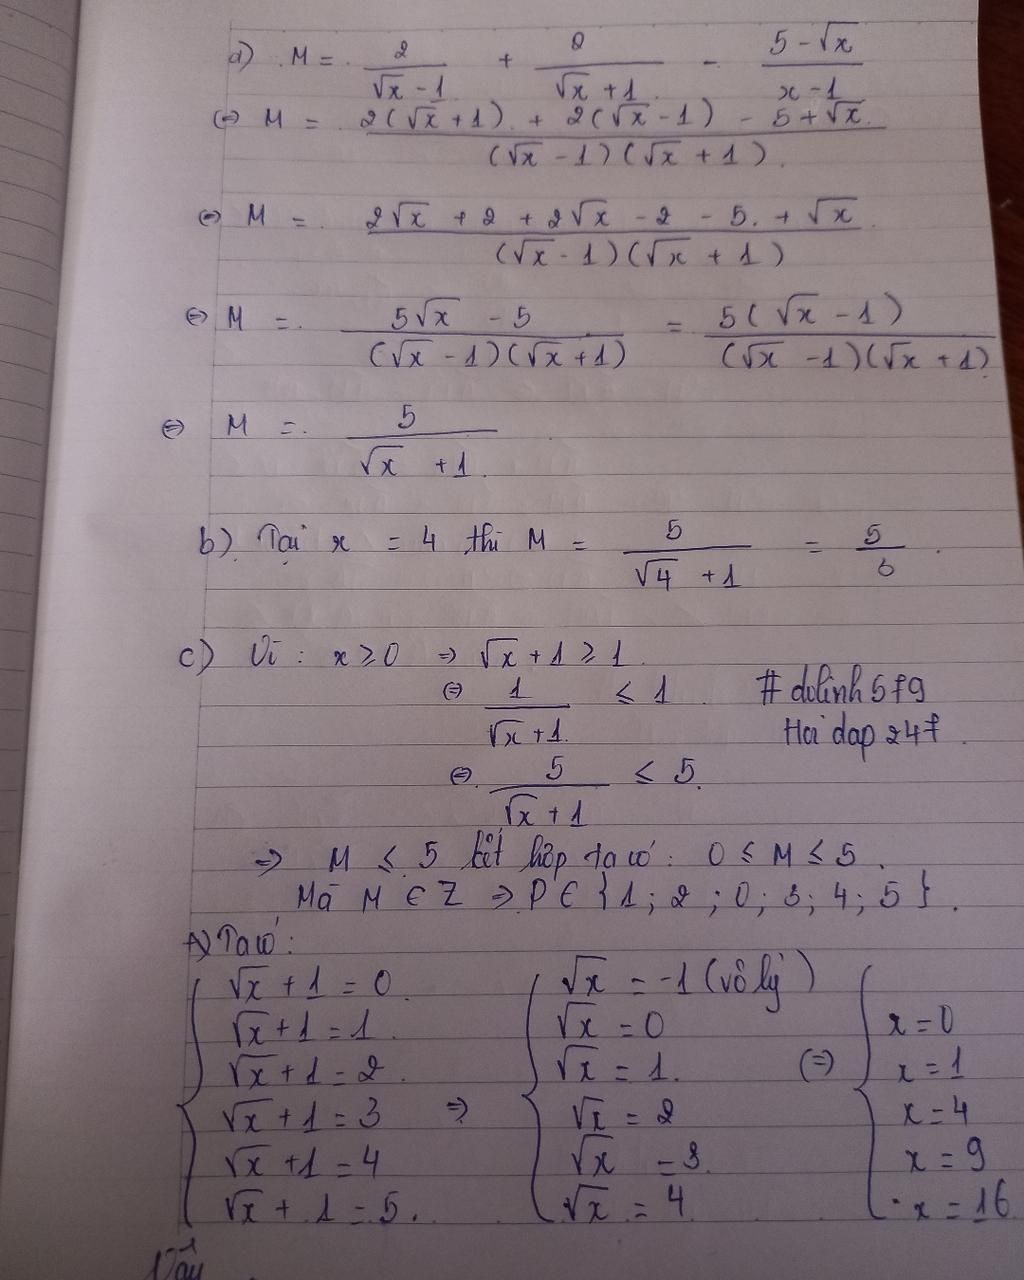 a) M = 2/(√x - 1) + 2/(√x + 1) - (5 - √x)/(x - 1)
(=) M = (2(√x + 1) + 2(√x - 1) - 5 + √x)/((√x - 1)(√x + 1))
(=) M = (2√x + 2 + 2√x - 2 - 5 + √x)/((√x - 1)(√x + 1))
(=) M = (5√x - 5)/((√x - 1)(√x + 1)) = 5(√x - 1)/((√x - 1)(√x + 1))
(=) M = 5/(√x + 1)
b) Tại x = 4 thì M = 5/(√4 + 1) = 5/6
c) Vì : x ≥ 0 => √x + 1 ≥ 1
(=) 1/(√x + 1) ≤ 1
# dolinh5 f9
Hoi dap 247
(=) 5/(√x + 1) ≤ 5
=> M ≤ 5 kết hợp ta có : 0 ≤ M ≤ 5 .
Mà M ∈ Z => P ∈ { 1 ; 2 ; 0 ; 3 ; 4 ; 5 } .
Ta có :
√x + 1 = 0 √x = -1 (vô lý)
√x + 1 = 1 √x = 0 x = 0
√x + 1 = 2 √x = 1 (=) x = 1
√x + 1 = 3 => √x = 2 x = 4
√x + 1 = 4 √x = 3 x = 9
√x + 1 = 5 . √x = 4 x = 16